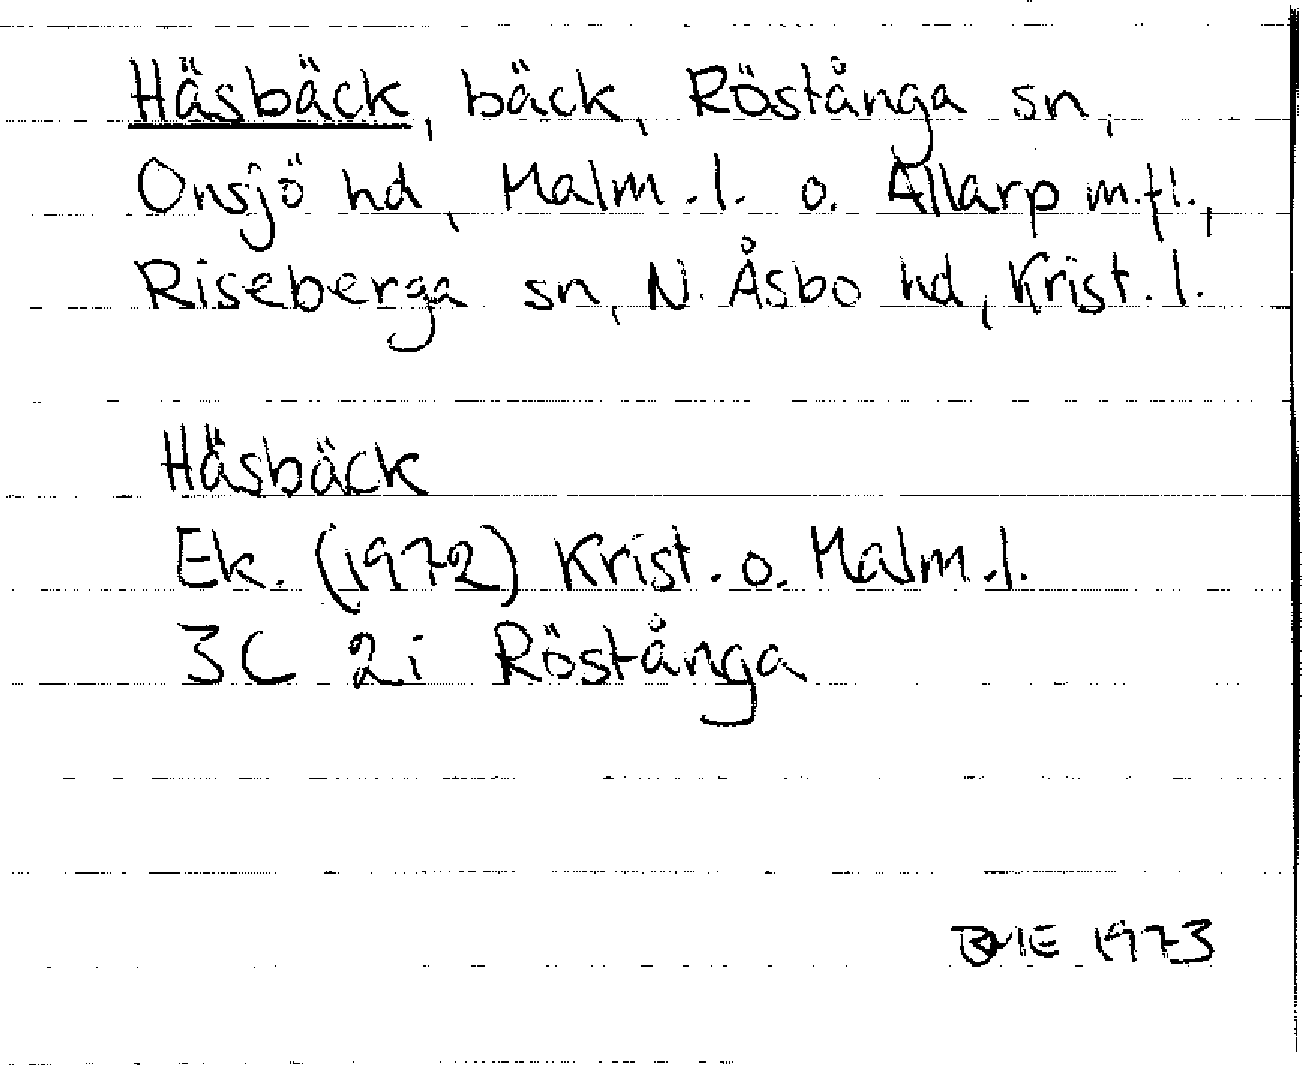 Häsbäck, bäck, Röstånga sn,
Onsjö hd, Malm.l. o. Allarp m.fl.,
Riseberga sn, N. Åsbo hd, Krist.l.
Häsbäck
Ek. (1972) Krist. o. Malm.l.
3C 2i Röstånga
1973